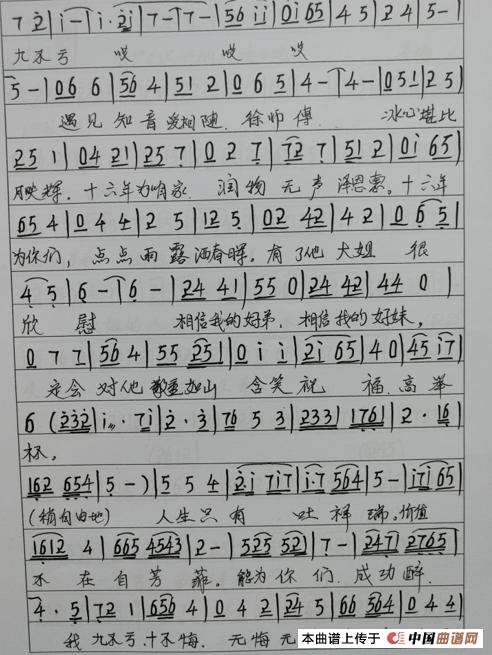 7 2|i-|i·2i|7-|7-|56 ii|0i65|4 5|2 4|5-|
九不亏 哎 哎 哎
5-|06 6|56 4|51 2|0 6 5|4-|4-|051|25|
遇见 知音爱相随. 徐师傅. 冰心堪比
25 1|04 21|25 7|0 2 7|72 7|51 2|0i 65|
月映辉. 十六年为咱家. 润物无声泽恩惠。十六年
65 4|0 4 4|2 5|12 5|02 42|42|0 6 5|
为你们, 点点雨露洒春晖. 有了他 大姐 很
4 5|6-|6-|24 41|55 0|24 42|44 0|
欣慰 相信我的好弟. 相信我的好妹,
0 7 7|56 4|55 251|0 i i|2i 65|4 0|45 i7|
定会对他 如山 含笑祝 福. 高举
6 (232|i·7i|2·3|76 5 3|2331 1761|2·16|
杯。
162 654|5-)|5 5 4|2i 7i7|i·7 564|5-|i7i 65|
(稍自由地) 人生只有 吐祥瑞。价值
1612 4|665 4543|2-|525 52|7-|247 2765|
不在自芳菲. 能为你们. 成功醉.
4·5|72 1|656 4|0 4 2|24 5|66 564|0 4 4|
我九不亏.十不悔. 无悔无
本曲谱上传于 中国曲谱网